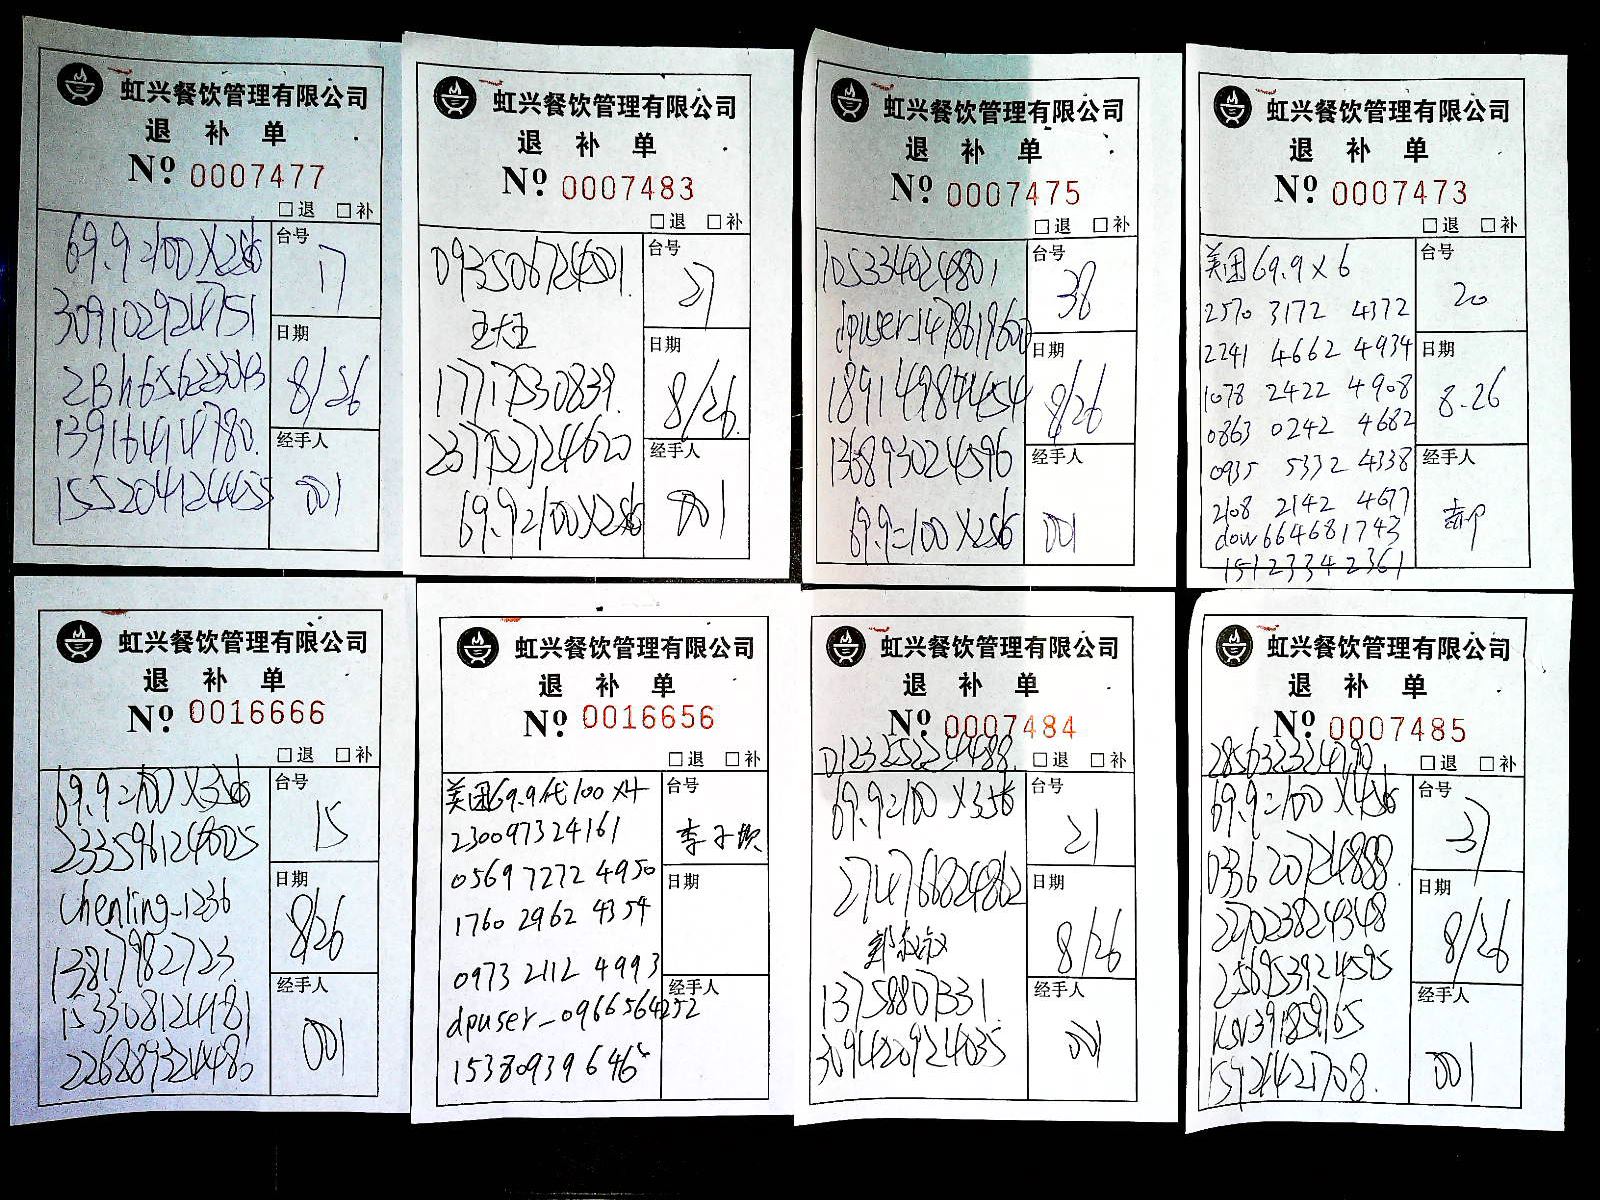 虹兴餐饮管理有限公司
退 补 单
Nº 0007477
□退 □补
69.9=100 X2张
台号
17
309102924751
日期
8/26
139164914780.
经手人
155204124455
001
虹兴餐饮管理有限公司
退 补 单
Nº 0007483
□退 □补
093506724501.
台号
27
王大王
日期
8/26.
17717530839.
237752724620
经手人
69.9=100X2张
001
虹兴餐饮管理有限公司
退 补 单
Nº 0007475
□退 □补
105334024801
台号
38
dpuser_1478619600
日期
8/26
136893024596
经手人
69.9=100 X2张
001
虹兴餐饮管理有限公司
退 补 单
Nº 0007473
□退 □补
美团69.9×6
台号
20
2570 3172 4372
2241 4662 4934
日期
8.26
1078 2422 4908
0863 0242 4682
0935 5332 4338
经手人
2108 2142 4677
dow664681743
15123342361
虹兴餐饮管理有限公司
退 补 单
Nº 0016666
□退 □补
69.9=100 X3张
台号
15
233596124805
日期
8/26
chenling_1236
13817982723
经手人
153308124481
001
226889324480
虹兴餐饮管理有限公司
退 补 单
Nº 0016656
□退 □补
美团69.9代100 X4
台号
230097324161
0569 7272 4950
日期
1760 2962 4354
0973 2112 4993
经手人
dpuser_0966564252
15380939646
虹兴餐饮管理有限公司
退 补 单
Nº 0007484
012325224488.
□退 □补
69.9=100 X3张
台号
21
274766824862
日期
8/26
郑叔叔
13758807331.
经手人
309420924035
001
虹兴餐饮管理有限公司
退 补 单
Nº 0007485
285632324790
□退 □补
69.9=100 X4张
台号
37
033620724888.
日期
8/26
227023824348
256953924595
经手人
15921421708.
001